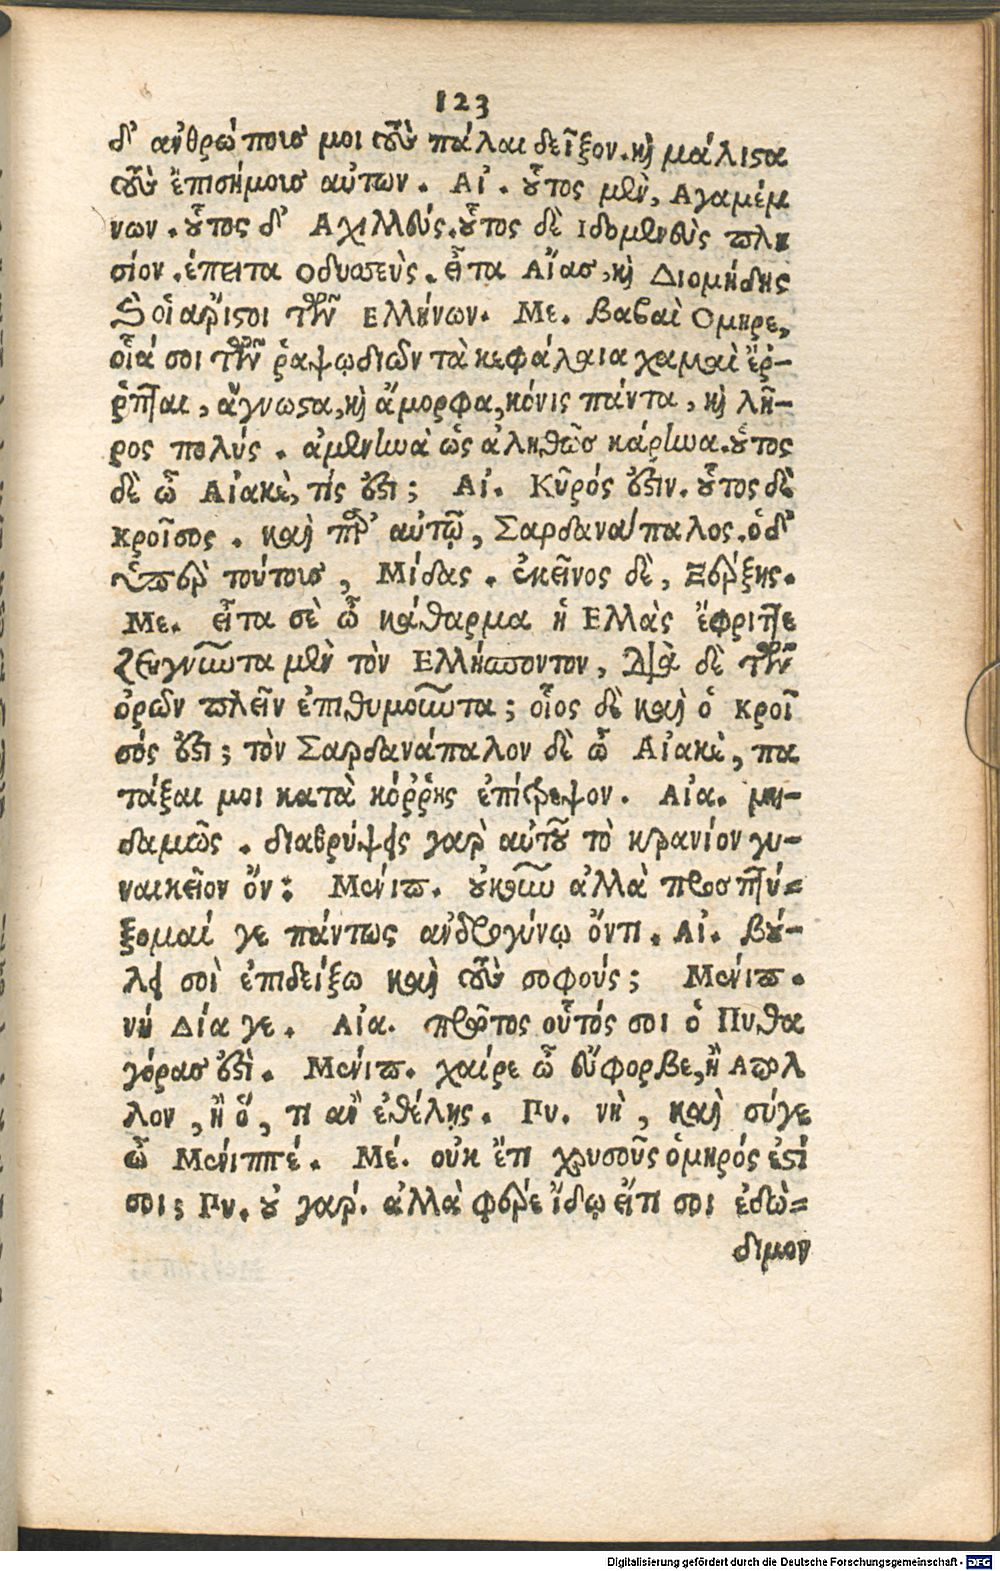 123
δ' ανθρώποισ μοι τοὺς πάλαι δεῖξον. καὶ μάλιστα
τοὺς ἐπισήμοισ αὐτων. Αἰ. οὗτος μὲν, Αγαμέμ
νων. οὗτος δ' Αχιλλεύς. οὗτος δὲ Ιδομενεὺς πλη
σίον. ἔπειτα Οδυσσεὺς. εἶτα Αἴασ, καὶ Διομήδης
καὶ οἱ ἄριστοι τῶν Ελλήνων. Με. βαβαὶ Ομηρε,
οἷά σοι τῶν ῥαψῳδιῶν τὰ κεφάλαια χαμαὶ ἔῤ-
ῥιπται, ἄγνωστα, καὶ ἄμορφα, κόνις πάντα, καὶ λῆ-
ρος πολύς. ἀμενηνὰ ὡς ἀληθῶσ κάρηνα. οὗτος
δὲ ὦ Αἰακὲ, τίς ἐστι; Αἰ. Κῦρός ἐστιν. οὗτος δὲ
κροῖσος. καὶ παρ' αὐτῷ, Σαρδανάπαλος. ὁ δ'
ὑπὲρ τούτοισ, Μίδας. ἐκεῖνος δὲ, Ξέρξης.
Με. εἶτα σὲ ὦ κάθαρμα ἡ Ελλὰς ἔφριττε
ζευγνῦντα μὲν τὸν Ελλήσποντον, διὰ δὲ τῶν
ὀρῶν πλεῖν ἐπιθυμοῦντα; οἷος δὲ καὶ ὁ κροῖ
σός ἐστι; τὸν Σαρδανάπαλον δὲ ὦ Αἰακὲ, πα
τάξαι μοι κατὰ κόῤῥης ἐπίτρεψον. Αἰα. μη-
δαμῶς. διαθρύψεις γαρ αὐτοῦ τὸ κρανίον γυ-
ναικεῖον ὄν: Μενίπ. οὐκοῦν ἀλλὰ προσπτύ-
ξομαί γε πάντως ανδρογύνῳ ὄντι. Αἰ. βού-
λει σοὶ ἐπιδείξω καὶ τοὺς σοφούς; Μενίπ.
νὴ Δία γε. Αἰα. πρῶτος οὗτός σοι ὁ Πυθα
γόρασ ἐστὶ. Μενίπ. χαίρε ὦ εὔφορβε, ἢ Απολ
λον, ἢ ὅ, τι αν ἐθέλης. Πυ. νὴ, καὶ σύγε
ὦ Μενιππέ. Μέ. οὐκ ἔτι χρυσοῦς ὁ μηρός ἐστί
σοι; Πυ. οὐ γαρ. ἀλλὰ φέρε ἴδω εἴ τι σοι ἐδώ-
διμον
Digitalisierung gefördert durch die Deutsche Forschungsgemeinschaft - DFG